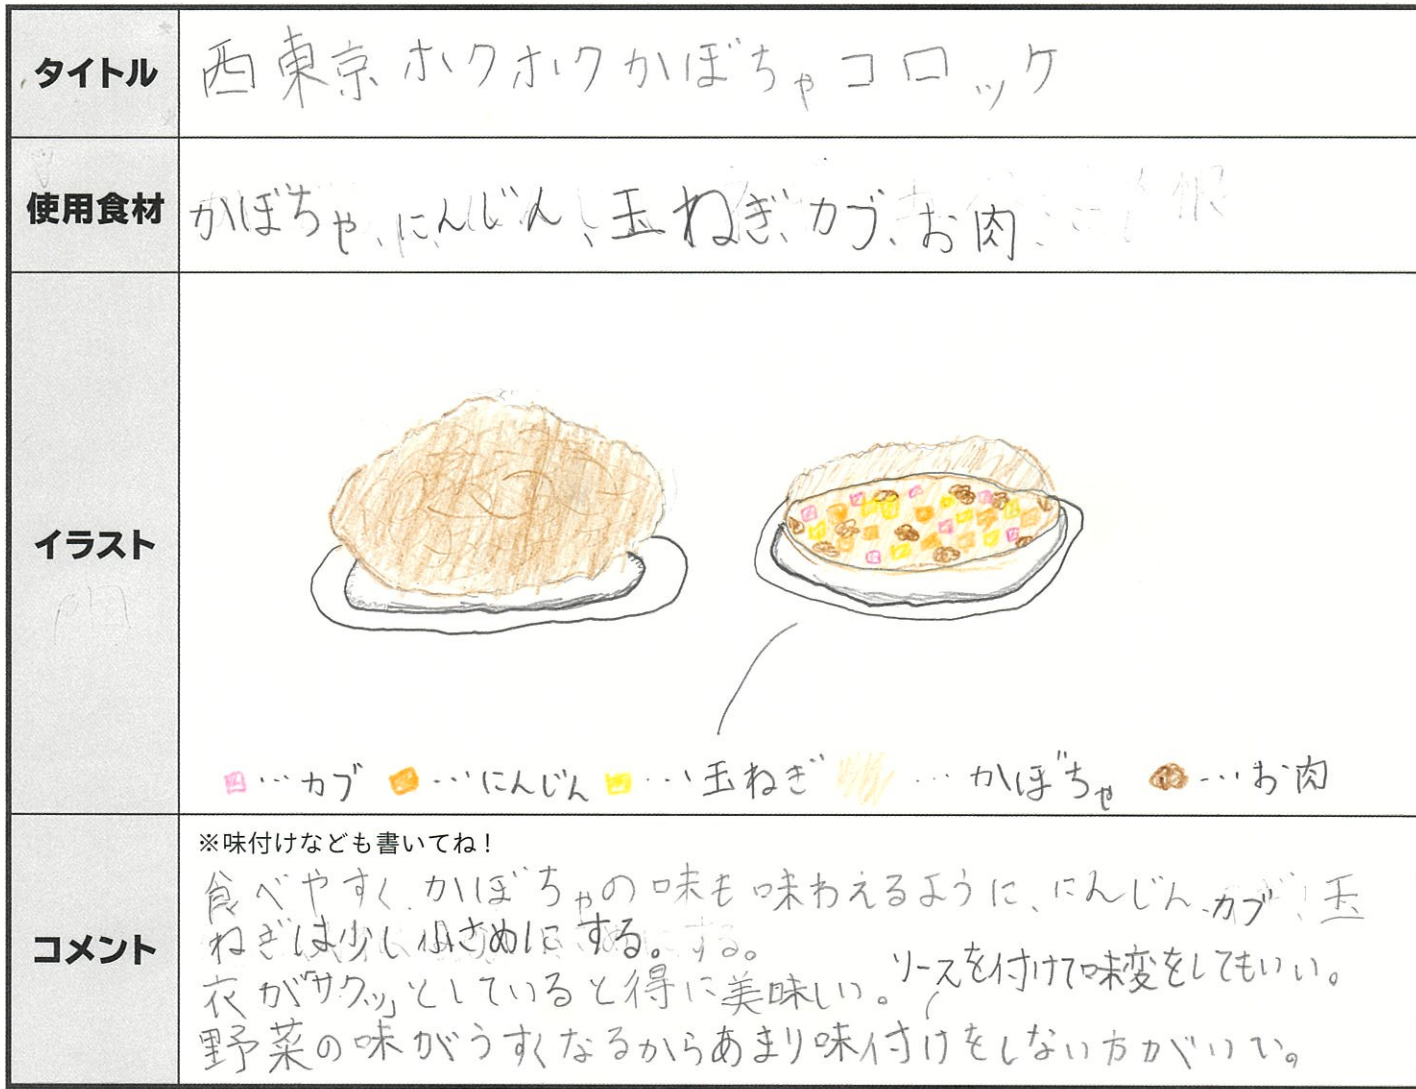 タイトル
西東京ホクホクかぼちゃコロッケ
使用食材
かぼちゃ、にんじん、玉ねぎ、カブ、お肉
イラスト
…カブ …にんじん …玉ねぎ …かぼちゃ …お肉
コメント
※味付けなども書いてね！
食べやすく、かぼちゃの味も味わえるように、にんじん、カブ、玉
ねぎは少し小さめにする。
衣が「サクッ」としていると得に美味しい。ソースを付けて味変をしてもいい。
野菜の味がうすくなるからあまり味付けをしない方がいい。